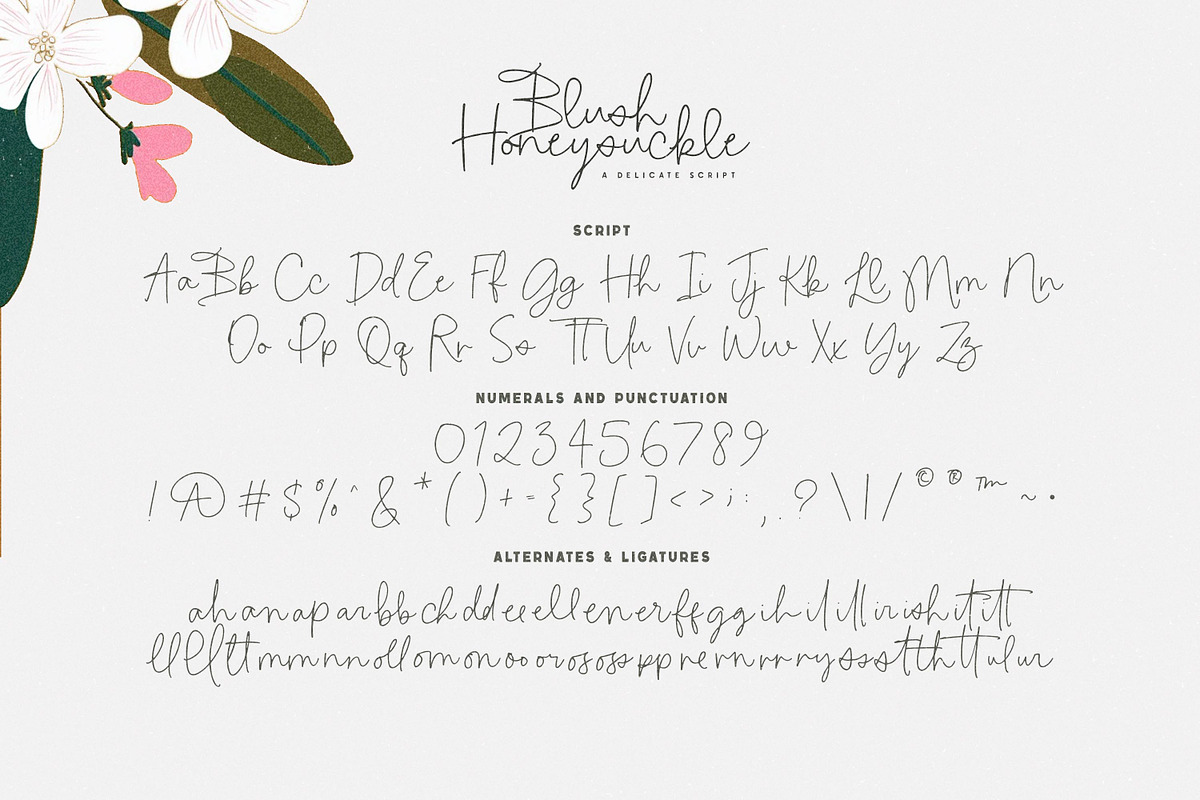 Blush
Honeysuckle
A DELICATE SCRIPT
SCRIPT
Aa Bb Cc Dd Ee Ff Gg Hh Ii Jj Kk Ll Mm Nn
Oo Pp Qq Rr Ss Tt Uu Vv Ww Xx Yy Zz
NUMERALS AND PUNCTUATION
0123456789
! @ # $ % ^ & * ( ) + = { } [ ] < > ; : , . ? \ | / © ® ™ ~ •
ALTERNATES & LIGATURES
ah an ap ar bb ch dd ee ell en er ff gg ih il ill ir ish it itt
ll ll tt mm nn oll om on oo or os oss pp re rn rr ry ss ss t th tt ul ur